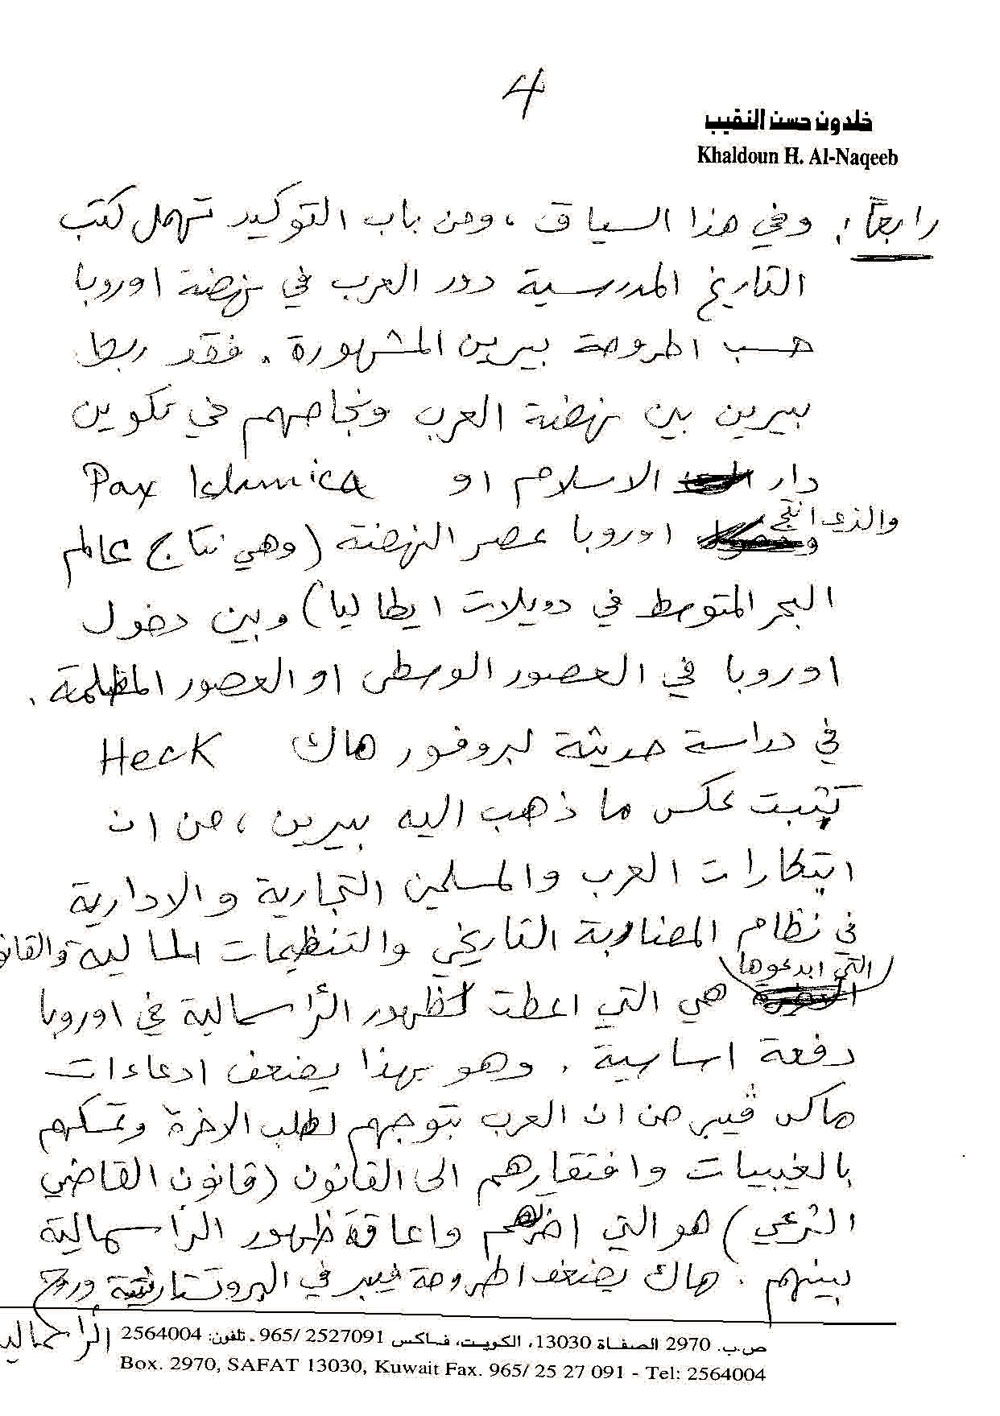 4
خلدون حسن النقيب
Khaldoun H. Al-Naqeeb
رابعاً: وفي هذا السياق، ومن باب التوكيد تهمل كتب
التاريخ المدرسية دور العرب في نهضة اوروبا
حسب اطروحة بيرين المشهورة. فقد ربط
بيرين بين نهضة العرب ونجاحهم في تكوين
دار الاسلام او Pax Islamica
والذي انتج اوروبا عصر النهضة (وهي نتاج عالم
البحر المتوسط في دويلات ايطاليا) وبين دخول
اوروبا في العصور الوسطى او العصور المظلمة.
في دراسة حديثة لبروفور هاك Heck
يثبت عكس ما ذهب اليه بيرين، من ان
ابتكارات العرب والمسلمين التجارية والادارية
في نظام المضاربة التاريخي والتنظيمات المالية والقانو
التي ابدعوها
هي التي اعطت لظهور الرأسمالية في اوروبا
دفعة اساسية. وهو بهذا يضعف ادعاءات
ماكس ڤيبر من ان العرب بتوجههم لطلب الاخرة وتمسكهم
بالغيبيات وافتقارهم الى القانون (قانون القاضي
الشرعي) هو التي اخرهم واعاقة ظهور الرأسمالية
بينهم. هاك يضعف اطروحة ڤيبر في البروتستانتية وروح
الرأسمالية
ص.ب. 2970 الصفاة 13030، الكويت، فاكس 2527091 /965 ـ تلفون: 2564004
Box. 2970, SAFAT 13030, Kuwait Fax. 965/ 25 27 091 - Tel: 2564004